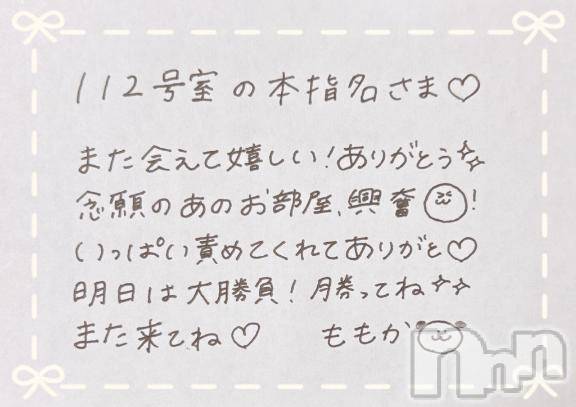 112号室の本指名さま♡
また会えて嬉しい!ありがとう✨
念願のあのお部屋、興奮!
いっぱい責めてくれてありがと♡
明日は大勝負!勝ってね✨
また来てね♡ ももか
Nnn